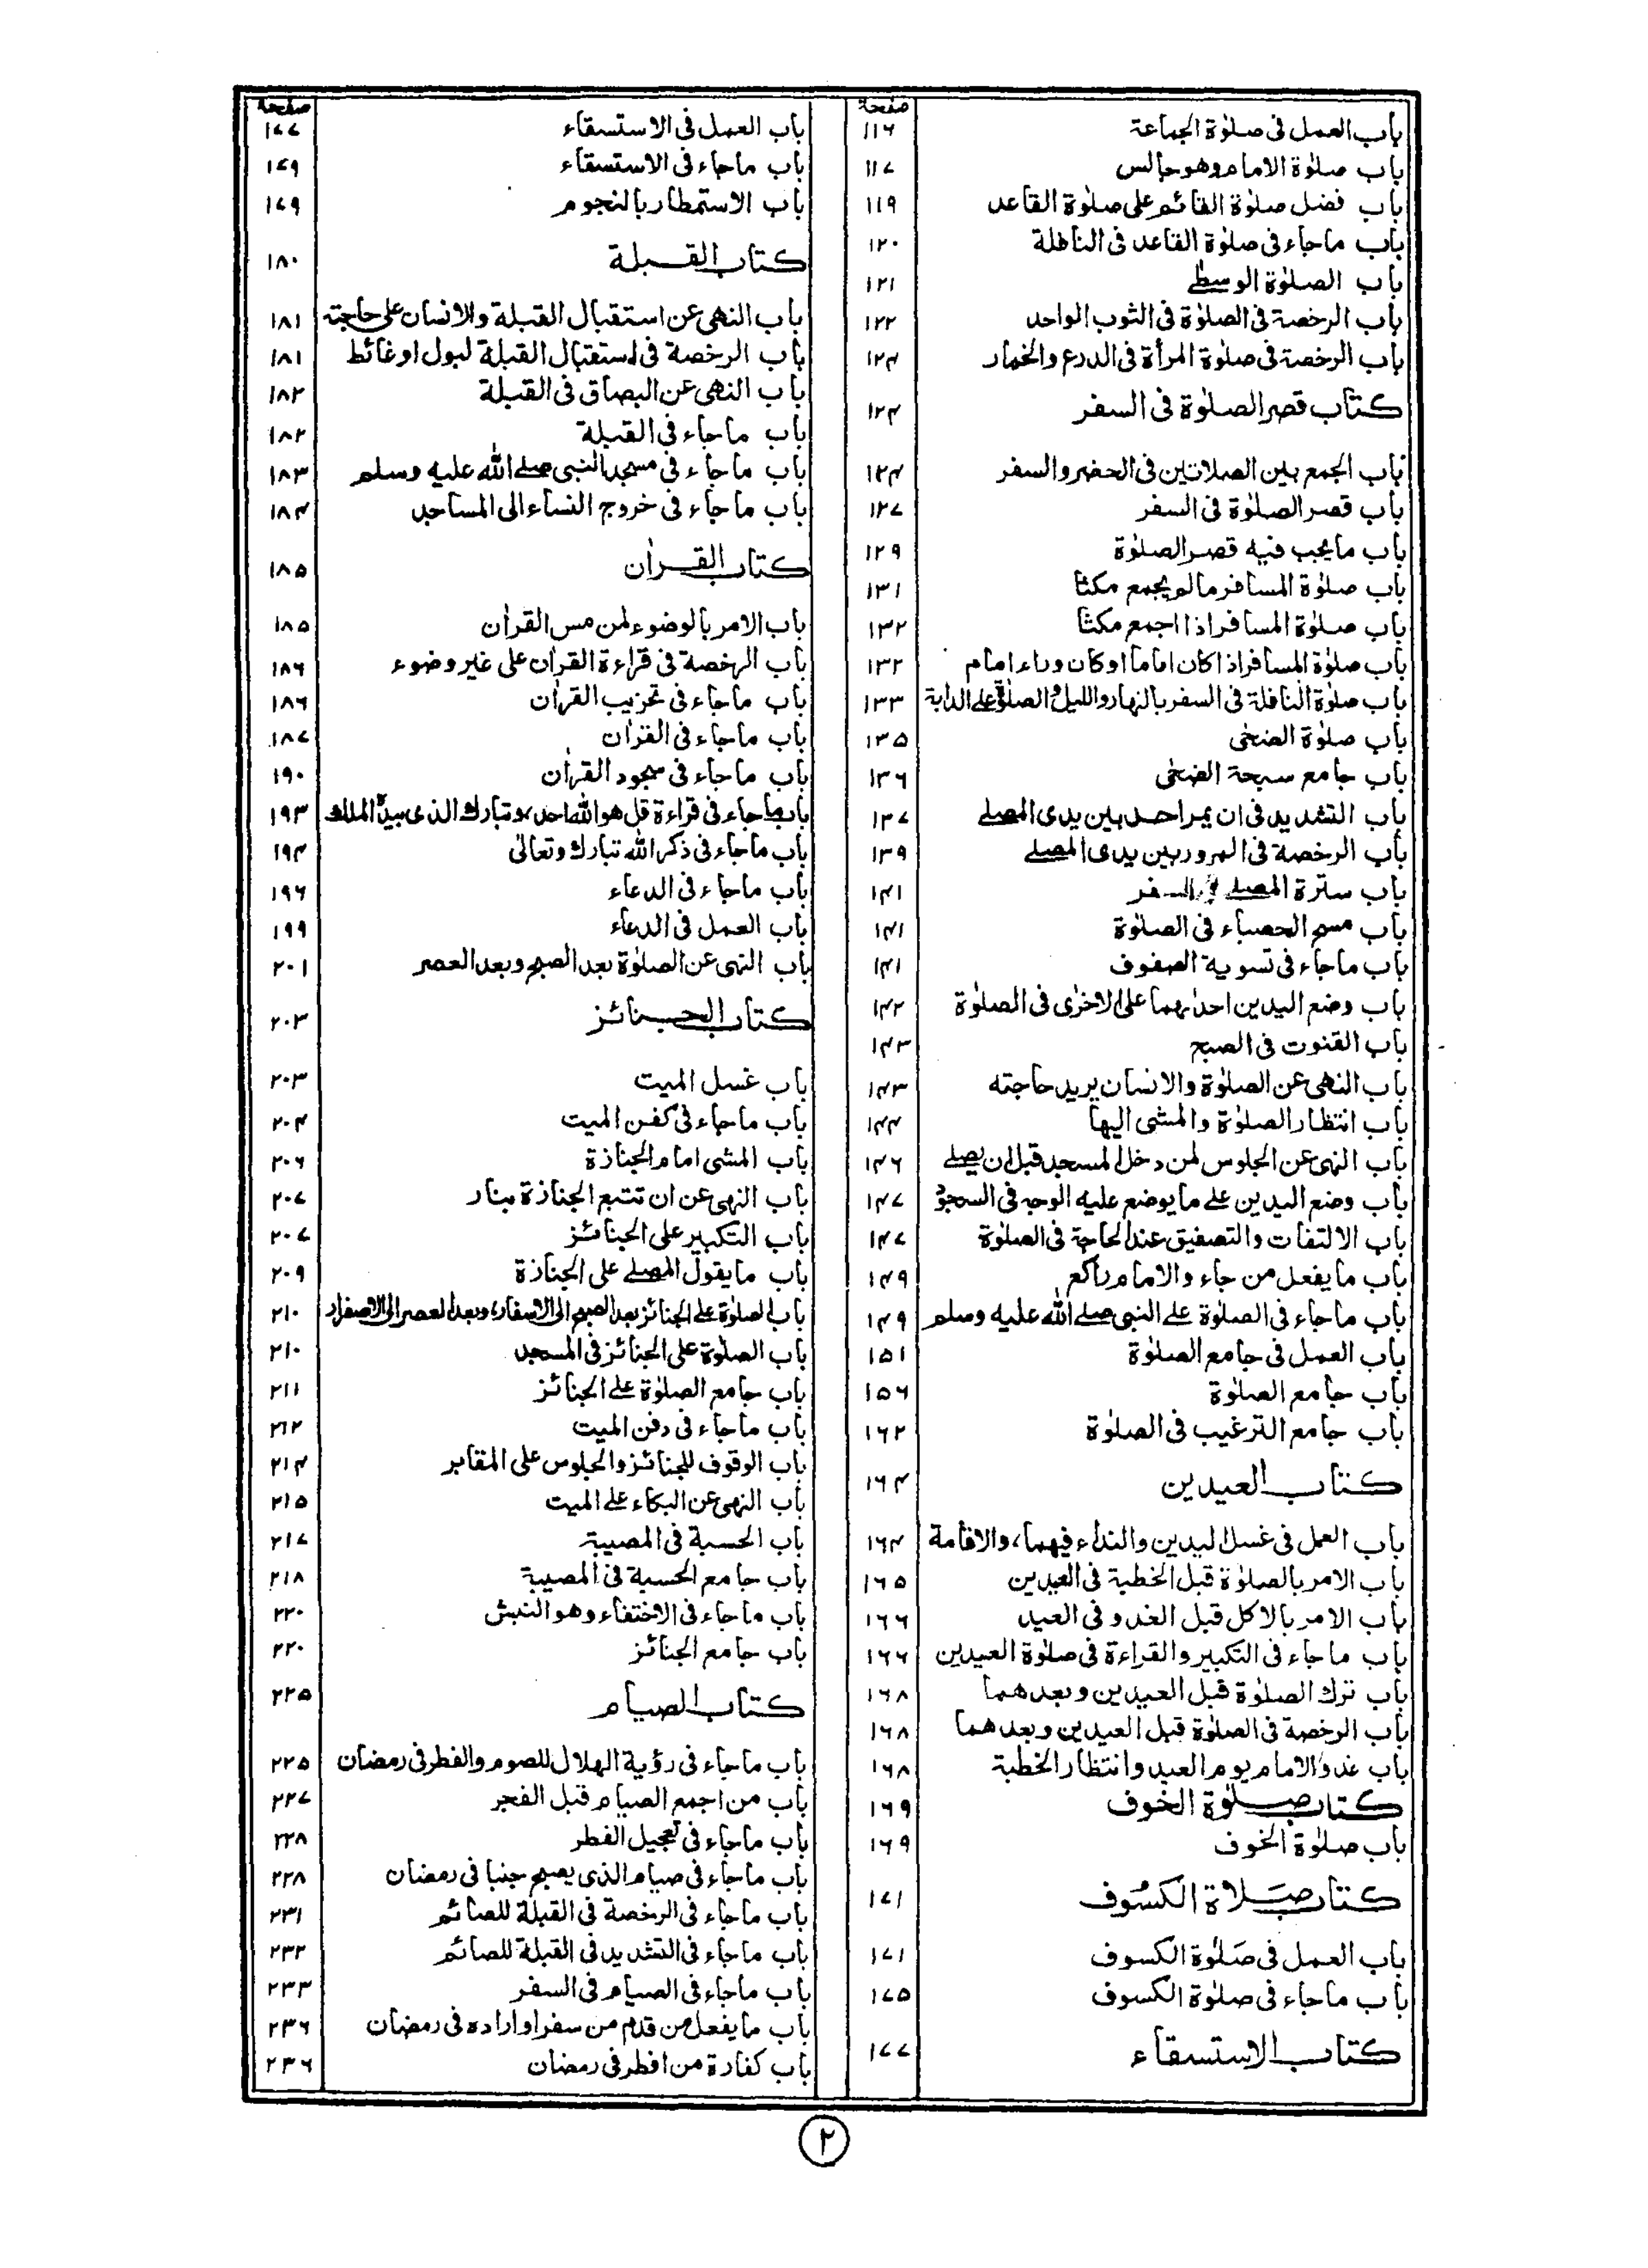 صفحة
باب العمل فى صلوٰة الجماعة ١١٦
باب صلوٰة الامام وهو جالس ١١٧
باب فضل صلوٰة القائم على صلوٰة القاعد ١١٩
باب ماجاء فى صلوٰة القاعد فى النافلة ١٢٠
باب الصلوٰة الوسطے ١٢١
باب الرخصة فى الصلوٰة فى الثوب الواحد ١٢٢
باب الرخصة فى صلوٰة المرأة فى الدرع والخمار ١٢٤
كتاب قصر الصلوٰة فى السفر ١٢٤
باب الجمع بين الصلاتين فى الحضر والسفر ١٢٤
باب قصر الصلوٰة فى السفر ١٢٧
باب مايجب فيه قصر الصلوٰة ١٢٩
باب صلوٰة المسافر مالم يجمع مكثا ١٣١
باب صلوٰة المسافر اذا اجمع مكثا ١٣٢
باب صلوٰة المسافر اذا كان اماما او كان وراء امام ١٣٢
باب صلوٰة النافلة فى السفر بالنهار والليل والصلوٰة علے الدابة ١٣٣
باب صلوٰة الضحٰى ١٣٥
باب جامع سبحة الضحٰى ١٣٦
باب التشديد فى ان يمر احد بين يدى المصلے ١٣٧
باب الرخصة فى المرور بين يدى المصلے ١٣٩
باب سترة المصلے فى السفر ١٤١
باب مسح الحصباء فى الصلوٰة ١٤١
باب ماجاء فى تسوية الصفوف ١٤١
باب وضع اليدين احدٰىهما على الاخرٰى فى الصلوٰة ١٤٢
باب القنوت فى الصبح ١٤٣
باب النهى عن الصلوٰة والانسان يريد حاجته ١٤٣
باب انتظار الصلوٰة والمشى اليها ١٤٤
باب النهى عن الجلوس لمن دخل المسجد قبل ان يصلے ١٤٦
باب وضع اليدين علے ما يوضع عليه الوجه فى السجود ١٤٧
باب الالتفات والتصفيق عند الحاجة فى الصلوٰة ١٤٧
باب مايفعل من جاء والامام راكع ١٤٩
باب ماجاء فى الصلوٰة علے النبى صلے الله عليه وسلم ١٤٩
باب العمل فى جامع الصلوٰة ١٥١
باب جامع الصلوٰة ١٥٦
باب جامع الترغيب فى الصلوٰة ١٦٢
كتاب العيدين ١٦٤
باب العمل فى غسل اليدين والنداء فيهما، والاقامة ١٦٤
باب الامر بالصلوٰة قبل الخطبة فى العيدين ١٦٥
باب الامر بالاكل قبل الغدو فى العيد ١٦٦
باب ماجاء فى التكبير والقراءة فى صلوٰة العيدين ١٦٦
باب ترك الصلوٰة قبل العيدين وبعدهما ١٦٨
باب الرخصة فى الصلوٰة قبل العيدين وبعدهما ١٦٨
باب غدو الامام يوم العيد وانتظار الخطبة ١٦٨
كتاب صلوٰة الخوف ١٦٩
باب صلوٰة الخوف ١٦٩
كتاب صَلاة الكسُوف ١٧١
باب العمل فى صَلوٰة الكسوف ١٧١
باب ماجاء فى صلوٰة الكسوف ١٧٥
كتاب الاستسقاء ١٧٧
صفحة
باب العمل فى الاستسقاء ١٧٧
باب ماجاء فى الاستسقاء ١٧٩
باب الاستمطار بالنجوم ١٧٩
كتاب القبلة ١٨٠
باب النهى عن استقبال القبلة والانسان على حاجته ١٨١
باب الرخصة فى استقبال القبلة لبول او غائط ١٨١
باب النهى عن البصاق فى القبلة ١٨٢
باب ماجاء فى القبلة ١٨٢
باب ماجاء فى مسجد النبى صلے الله عليه وسلم ١٨٣
باب ماجاء فى خروج النساء الى المساجد ١٨٤
كتاب القراٰن ١٨٥
باب الامر بالوضوء لمن مس القراٰن ١٨٥
باب الرخصة فى قراءة القراٰن على غير وضوء ١٨٦
باب ماجاء فى تحزيب القراٰن ١٨٦
باب ماجاء فى القراٰن ١٨٧
باب ماجاء فى سجود القراٰن ١٩٠
باب ماجاء فى قراءة قل هو الله احد، وتبارك الذى بيده الملك ١٩٣
باب ماجاء فى ذكر الله تبارك وتعالىٰ ١٩٤
باب ماجاء فى الدعاء ١٩٦
باب العمل فى الدعاء ١٩٩
باب النهى عن الصلوٰة بعد الصبح وبعد العصر ٢٠١
كتاب الجنائز ٢٠٣
باب غسل الميت ٢٠٣
باب ماجاء فى كفن الميت ٢٠٤
باب المشى امام الجنازة ٢٠٦
باب النهى عن ان تتبع الجنازة بنار ٢٠٧
باب التكبير على الجنائز ٢٠٧
باب مايقول المصلے على الجنازة ٢٠٩
باب الصلوٰة علے الجنائز بعد الصبح الى الاسفار، وبعد العصر الى الاصفرار ٢١٠
باب الصلوٰة على الجنائز فى المسجد ٢١٠
باب جامع الصلوٰة علے الجنائز ٢١١
باب ماجاء فى دفن الميت ٢١٢
باب الوقوف للجنائز والجلوس على المقابر ٢١٤
باب النهى عن البكاء علے الميت ٢١٥
باب الحسبة فى المصيبة ٢١٧
باب جامع الحسبة فى المصيبة ٢١٨
باب ماجاء فى الاختفاء وهو النبش ٢٢٠
باب جامع الجنائز ٢٢٠
كتاب الصيام ٢٢٥
باب ماجاء فى رؤية الهلال للصوم والفطر فى رمضان ٢٢٥
باب من اجمع الصيام قبل الفجر ٢٢٧
باب ماجاء فى تعجيل الفطر ٢٢٨
باب ماجاء فى صيام الذى يصبح جنبا فى رمضان ٢٢٨
باب ماجاء فى الرخصة فى القبلة للصائم ٢٣١
باب ماجاء فى التشديد فى القبلة للصائم ٢٣٢
باب ماجاء فى الصيام فى السفر ٢٣٣
باب مايفعل من قدم من سفر او اراده فى رمضان ٢٣٦
باب كفارة من افطر فى رمضان ٢٣٦
٢